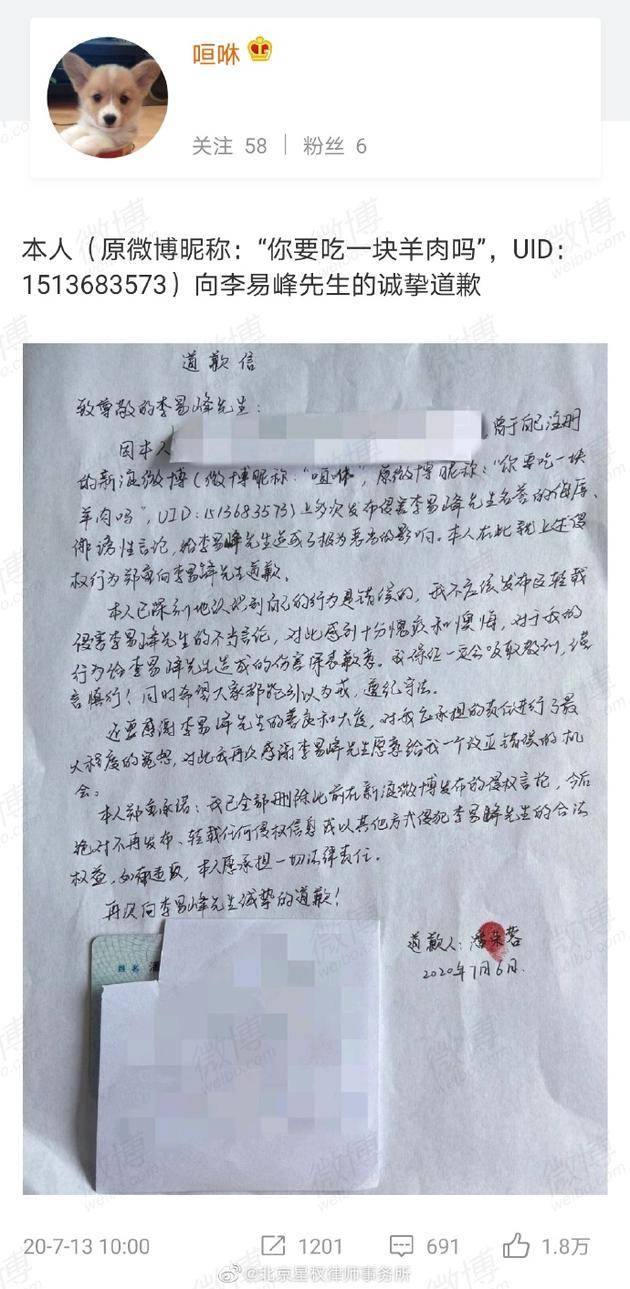 喧咻
关注 58 粉丝 6
本人（原微博昵称：“你要吃一块羊肉吗”，UID：
1513683573）向李易峰先生的诚挚道歉
道歉信
致尊敬的李易峰先生：
因本人 ，曾于自己注册
的新浪微博（微博昵称：“喧咻”，原微博昵称：“你要吃一块
羊肉吗”，UID：1513683573）上多次发布侵害李易峰先生名誉的侮辱、
诽谤性言论，给李易峰先生造成了极为恶劣的影响。本人在此就上述侵
权行为郑重向李易峰先生道歉。
本人已深刻地认识到自己的行为是错误的，我不应该发布及转载
侵害李易峰先生的不当言论，对此感到十分愧疚和懊悔，对于我的
行为给李易峰先生造成的伤害深表歉意。我保证一定会吸取教训，谨
言慎行！同时希望大家都能引以为戒，遵纪守法。
还要感谢李易峰先生的善良和大度，对我应承担的责任进行了最
大程度的宽恕，对此我再次感谢李易峰先生愿意给我一个改正错误的机
会。
本人郑重承诺：我已全部删除此前在新浪微博发布的侵权言论，今后
绝对不再发布、转载任何侵权信息或以其他方式侵犯李易峰先生的合法
权益，如有违反，本人愿承担一切法律责任。
再次向李易峰先生诚挚的道歉！
道歉人：潘荣
2020年7月6日
姓名 潘
20-7-13 10:00 1201 691 1.8万
@北京星权律师事务所
微博
weibo.com